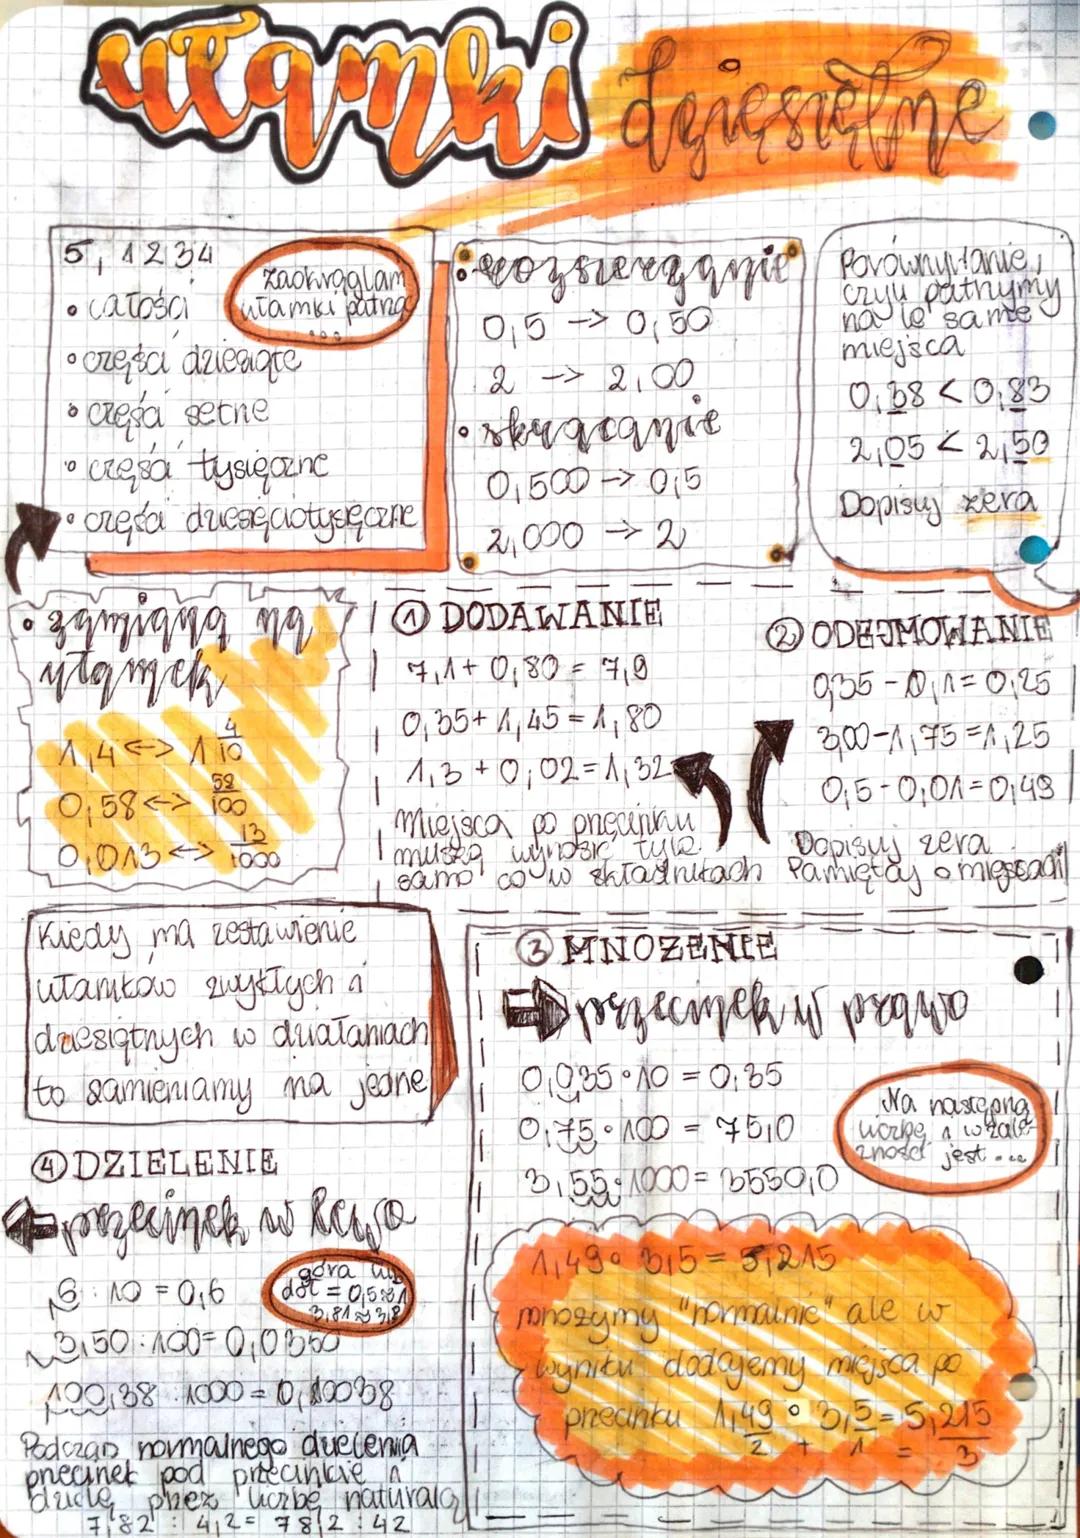 ułamki dziesiętne
5,1234
• całości
• części dziesiąte
• części setne
• części tysięczne
• części dziesięciotysięczne
zaokrąglam
ułamki patrząc
...
• rozszerzanie
0,5 -> 0,50
2 -> 2,00
• skracanie
0,500 -> 0,5
2,000 -> 2
Porównywanie,
czyli patrzymy
na te same
miejsca
0,38 < 0,83
2,05 < 2,50
Dopisuj zera
• zamiana na
ułamek
1,4 <-> 1 4/10
0,58 <-> 58/100
0,013 <-> 13/1000
① DODAWANIE
7,1 + 0,80 = 7,9
0,35 + 1,45 = 1,80
1,3 + 0,02 = 1,32
Miejsca po przecinku
muszą wynosić tyle
samo co w składnikach
② ODEJMOWANIE
0,35 - 0,1 = 0,25
3,00 - 1,75 = 1,25
0,5 - 0,01 = 0,49
Dopisuj zera.
Pamiętaj o
Kiedy ma zestawienie
ułamków zwykłych i
dziesiętnych w działaniach
to zamieniamy na jedne
③ MNOŻENIE
przecinek w prawo
0,035 • 10 = 0,35
0,75 • 100 = 75,0
3,55 • 1000 = 3550,0
Na następną
liczbę i w zale-
żności jest...
1,49 • 3,5 = 5,215
mnożymy "normalnie" ale w
wyniku dodajemy miejsca po
przecinku 1,49 • 3,5 = 5,215
2 + 1 = 3
④ DZIELENIE
przecinek w lewo
6 : 10 = 0,6
3,50 : 100 = 0,0350
100,38 : 1000 = 0,10038
góra lub
dół = 0,5≈1
3,81≈3,8
Podczas normalnego dzielenia
przecinek pod przecinkie i
dzielę przez liczbę naturalą
7,82 : 4,2 = 78,2 : 42